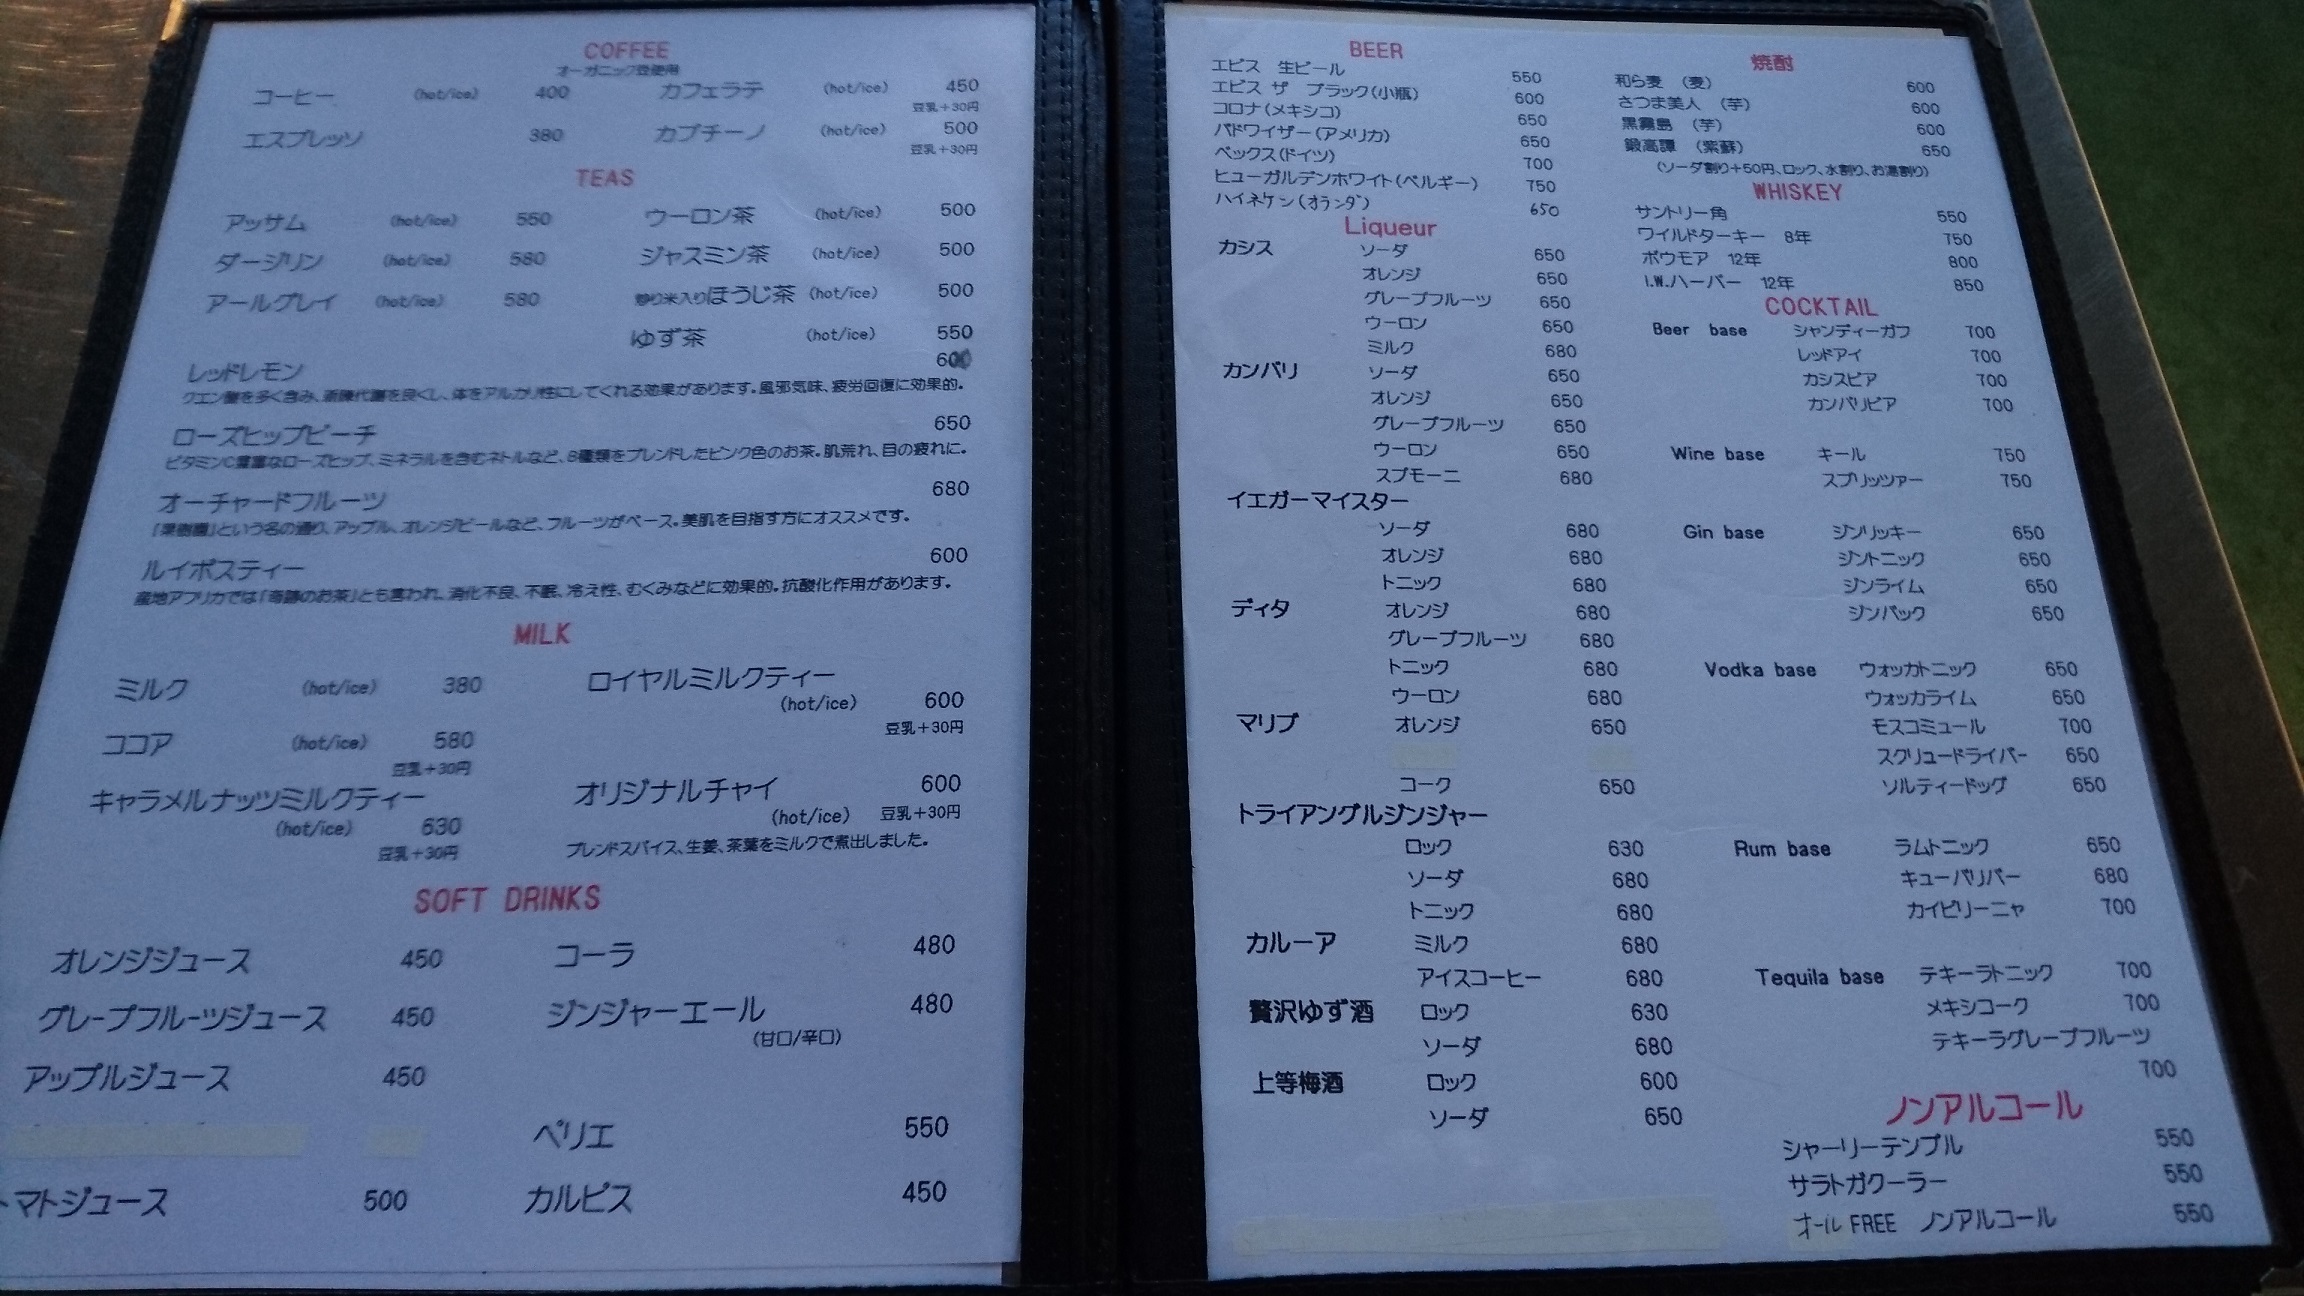 COFFEE
オーガニック豆使用
コーヒー (hot/ice) 400 カフェラテ (hot/ice) 450
豆乳+30円
エスプレッソ 380 カプチーノ (hot/ice) 500
豆乳+30円
TEAS
アッサム (hot/ice) 550 ウーロン茶 (hot/ice) 500
ダージリン (hot/ice) 580 ジャスミン茶 (hot/ice) 500
アールグレイ (hot/ice) 580 炒り米入りほうじ茶 (hot/ice) 500
ゆず茶 (hot/ice) 550
レッドレモン 600
クエン酸を多く含み、新陳代謝を良くし、体をアルカリ性にしてくれる効果があります。風邪気味、疲労回復に効果的。
ローズヒップピーチ 650
ビタミンC豊富なローズヒップ、ミネラルを含むネトルなど、8種類をブレンドしたピンク色のお茶。肌荒れ、目の疲れに。
オーチャードフルーツ 680
「果樹園」という名の通り、アップル、オレンジピールなど、フルーツがベース。美肌を目指す方にオススメです。
ルイボスティー 600
産地アフリカでは「奇跡のお茶」とも言われ、消化不良、不眠、冷え性、むくみなどに効果的。抗酸化作用があります。
MILK
ミルク (hot/ice) 380 ロイヤルミルクティー
(hot/ice) 600
豆乳+30円
ココア (hot/ice) 580
豆乳+30円
キャラメルナッツミルクティー オリジナルチャイ 600
(hot/ice) 630 (hot/ice) 豆乳+30円
豆乳+30円 ブレンドスパイス、生姜、茶葉をミルクで煮出しました。
SOFT DRINKS
オレンジジュース 450 コーラ 480
グレープフルーツジュース 450 ジンジャーエール 480
(甘口/辛口)
アップルジュース 450
ペリエ 550
トマトジュース 500 カルピス 450
BEER
エビス 生ビール 550
エビス ザ ブラック(小瓶) 600
コロナ(メキシコ) 650
バドワイザー(アメリカ) 650
ベックス(ドイツ) 700
ヒューガルデンホワイト(ベルギー) 750
ハイネケン(オランダ) 650
Liqueur
カシス ソーダ 650
オレンジ 650
グレープフルーツ 650
ウーロン 650
ミルク 680
カンパリ ソーダ 650
オレンジ 650
グレープフルーツ 650
ウーロン 650
スプモーニ 680
イエガーマイスター
ソーダ 680
オレンジ 680
トニック 680
ディタ オレンジ 680
グレープフルーツ 680
トニック 680
ウーロン 680
マリブ オレンジ 650
コーク 650
トライアングルジンジャー
ロック 630
ソーダ 680
トニック 680
カルーア ミルク 680
アイスコーヒー 680
贅沢ゆず酒 ロック 630
ソーダ 680
上等梅酒 ロック 600
ソーダ 650
焼酎
和ら麦 (麦) 600
さつま美人 (芋) 600
黒霧島 (芋) 600
鍛高譚 (紫蘇) 650
(ソーダ割り+50円、ロック、水割り、お湯割り)
WHISKEY
サントリー角 550
ワイルドターキー 8年 750
ボウモア 12年 800
I.W.ハーパー 12年 850
COCKTAIL
Beer base シャンディーガフ 700
レッドアイ 700
カシスビア 700
カンパリビア 700
Wine base キール 750
スプリッツァー 750
Gin base ジンリッキー 650
ジントニック 650
ジンライム 650
ジンバック 650
Vodka base ウォッカトニック 650
ウォッカライム 650
モスコミュール 700
スクリュードライバー 650
ソルティードッグ 650
Rum base ラムトニック 650
キューバリバー 680
カイピリーニャ 700
Tequila base テキーラトニック 700
メキシコーク 700
テキーラグレープフルーツ
700
ノンアルコール
シャーリーテンプル 550
サラトガクーラー 550
オールFREE ノンアルコール 550